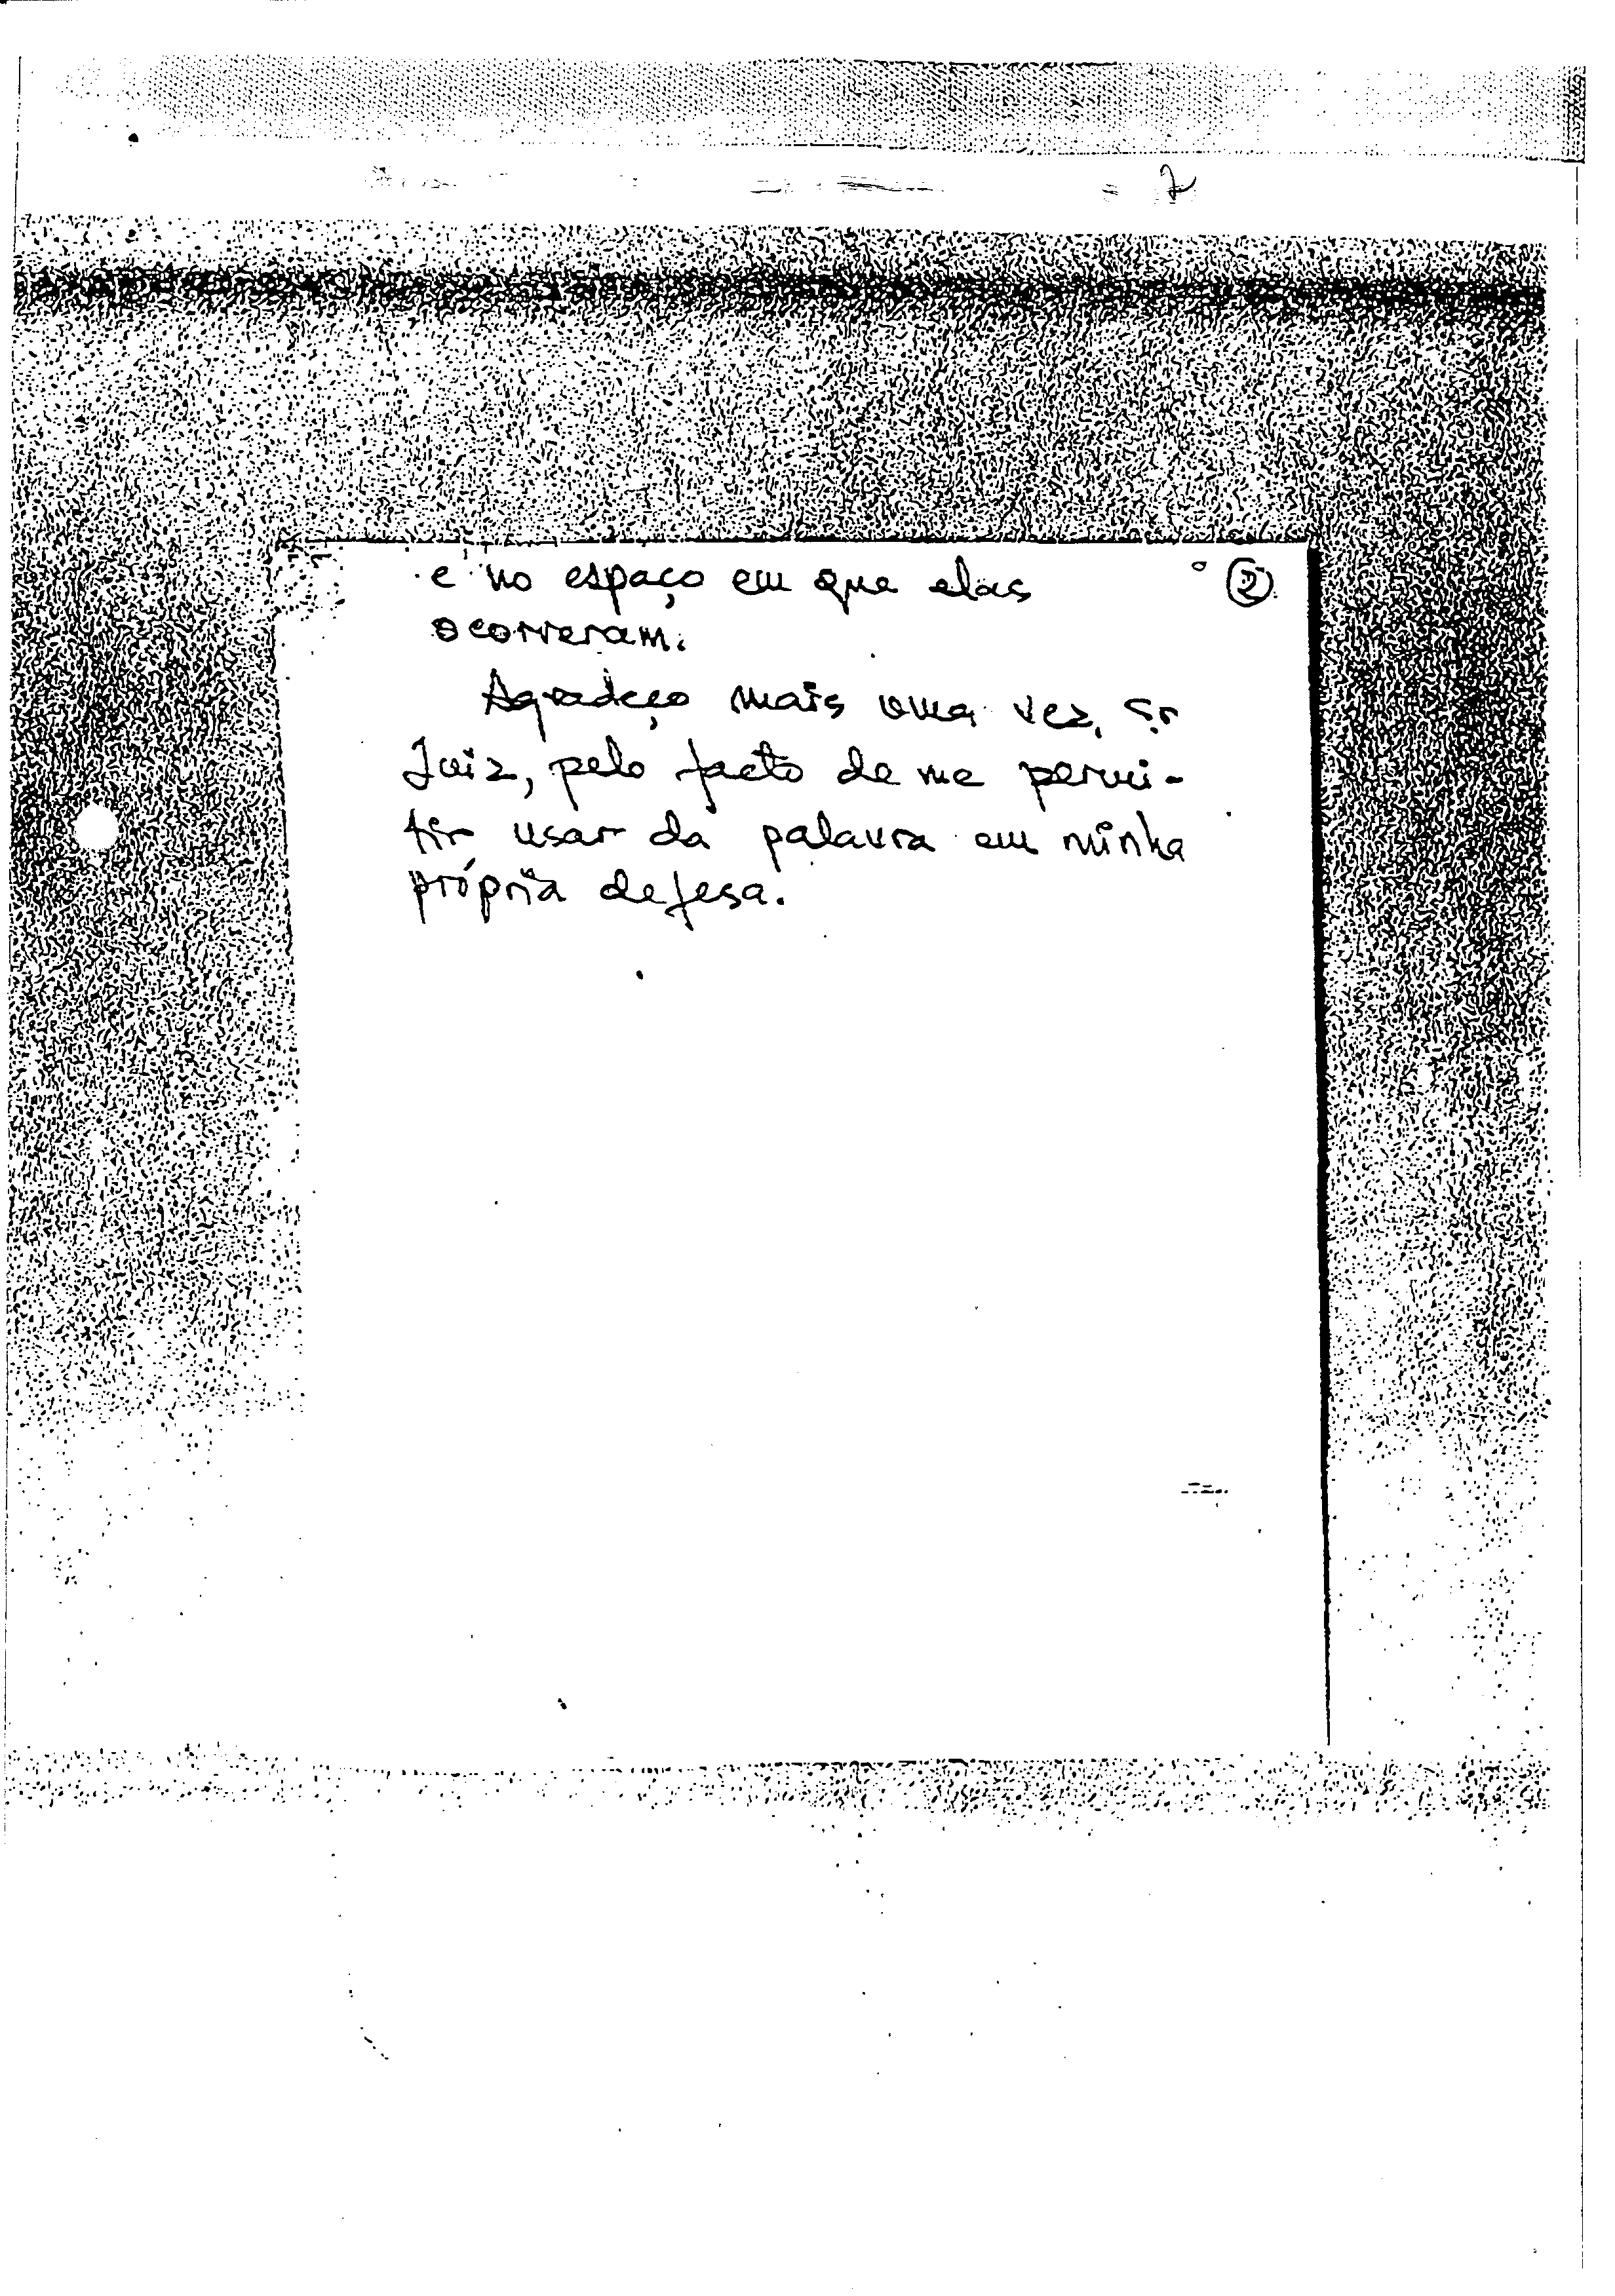 7
e no espaço em que elas ②
ocorreram.
Agradeço mais uma vez, Sr
Juiz, pelo facto de me permi-
tir usar da palavra em minha
própria defesa.